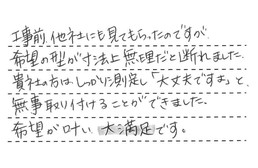 工事前、他社にも見てもらったのですが、
希望の型が寸法上無理だと断れました。
貴社の方は、しっかり測定し「大丈夫ですよ」と、
無事取り付けることができました。
希望が叶い、大満足です。